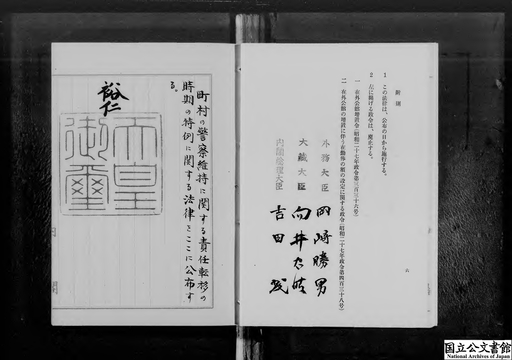 附則
1 この法律は、公布の日から施行する。
2 左に掲げる政令は、廃止する。
一 在外公館増置令(昭和二十七年政令第三百三十六号)
二 在外公館の増置に伴う在勤俸の額の設定に関する政令(昭和二十七年政令第四百三十八号)
外務大臣 岡崎勝男
大蔵大臣 向井忠晴
内閣総理大臣 吉田茂
六
町村の警察維持に関する責任転移の
時期の特例に関する法律をここに公布す
る。
裕仁
天皇
御璽
国立公文書館
National Archives of Japan